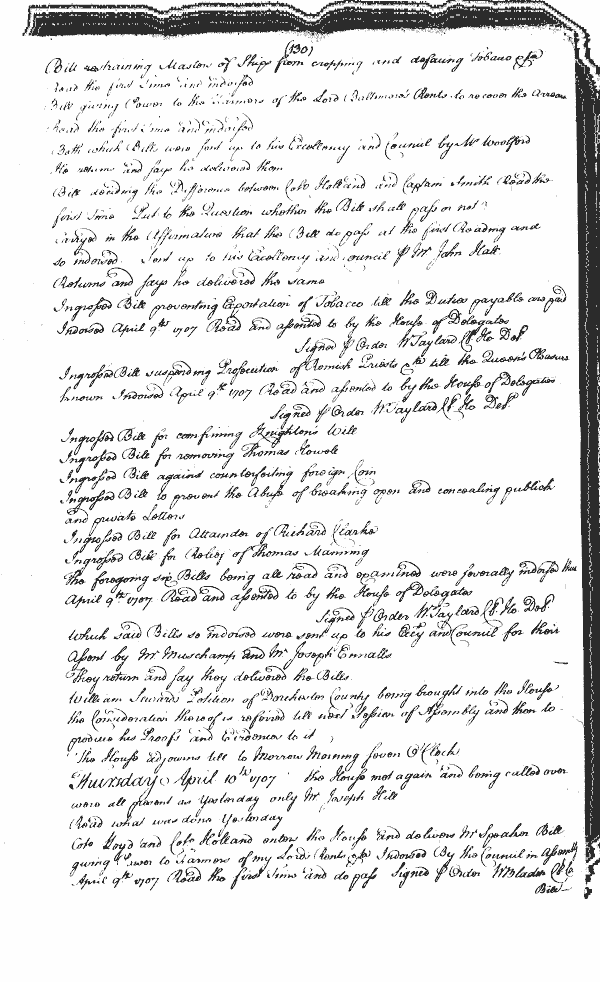 (130)
Bill restraining Masters of Ships from cropping and defacing Tobacco &ca
Read the first Time and indorsed
Bill giving Power to the Farmers of the Lord Baltimore's Rents to recover the Arrears
Read the first Time and indorsed
Both which Bills were sent up to his Excellency and Council by Mr Woolford
He returns and says he delivered them
Bill deciding the Difference between Colo Holland and Captain Smith Read the
first time Put to the Question whether the Bill shall pass or not?
Carryed in the Affirmative that the Bill do pass at the first Reading and
so indorsed. Sent up to his Excellency and Council ꝑ Mr John Hall
Returns and says he delivered the same
Ingrossed Bill preventing Exportation of Tobacco till the Duties payable are paid
Indorsed April 9th 1707 Read and assented to by the House of Delegates
Signed ꝑ Order W Taylard Cl. Ho. Del.
Ingrossed Bill suspending Prosecution of Romish Priests &ca till the Queen's Pleasure
known Indorsed April 9th 1707 Read and assented to by the House of Delegates
Signed ꝑ Order W Taylard Cl. Ho. Del.
Ingrossed Bill for confirming Knighton's Will
Ingrossed Bill for removing Thomas Howell
Ingrossed Bill against counterfeiting foreign Coin
Ingrossed Bill to prevent the Abuse of breaking open and concealing publick
and private Letters
Ingrossed Bill for Attainder of Richard Clarke
Ingrossed Bill for Relief of Thomas Manning
The foregoing six Bills being all read and examined were severally indorsed thus
April 9th 1707 Read and assented to by the House of Delegates
Signed ꝑ Order W Taylard Cl. Ho. Del.
Which said Bills so indorsed were sent up to his Excy and Council for their
Assent by Mr Muschamp and Mr Joseph Ennalls
They return and say they delivered the Bills.
William Petition of Dorchester County being brought into the House
the Consideration thereof is referred till next Session of Assembly and then to
produce his Proofs and Evidence to it
The House adjourns till to Morrow Morning seven O'Clock
Thursday April 10th 1707 The House met again and being called over
were all present as Yesterday only Mr Joseph Hill
Read what was done Yesterday
Colo Lloyd and Colo Holland enters the House and delivers Mr Speaker Bill
giving Power to Farmers of my Lords Rents &ca Indorsed By the Council in Assembly
April 9th 1707 Read the first Time and do pass Signed ꝑ Order W Bladen Cl Co
Bill